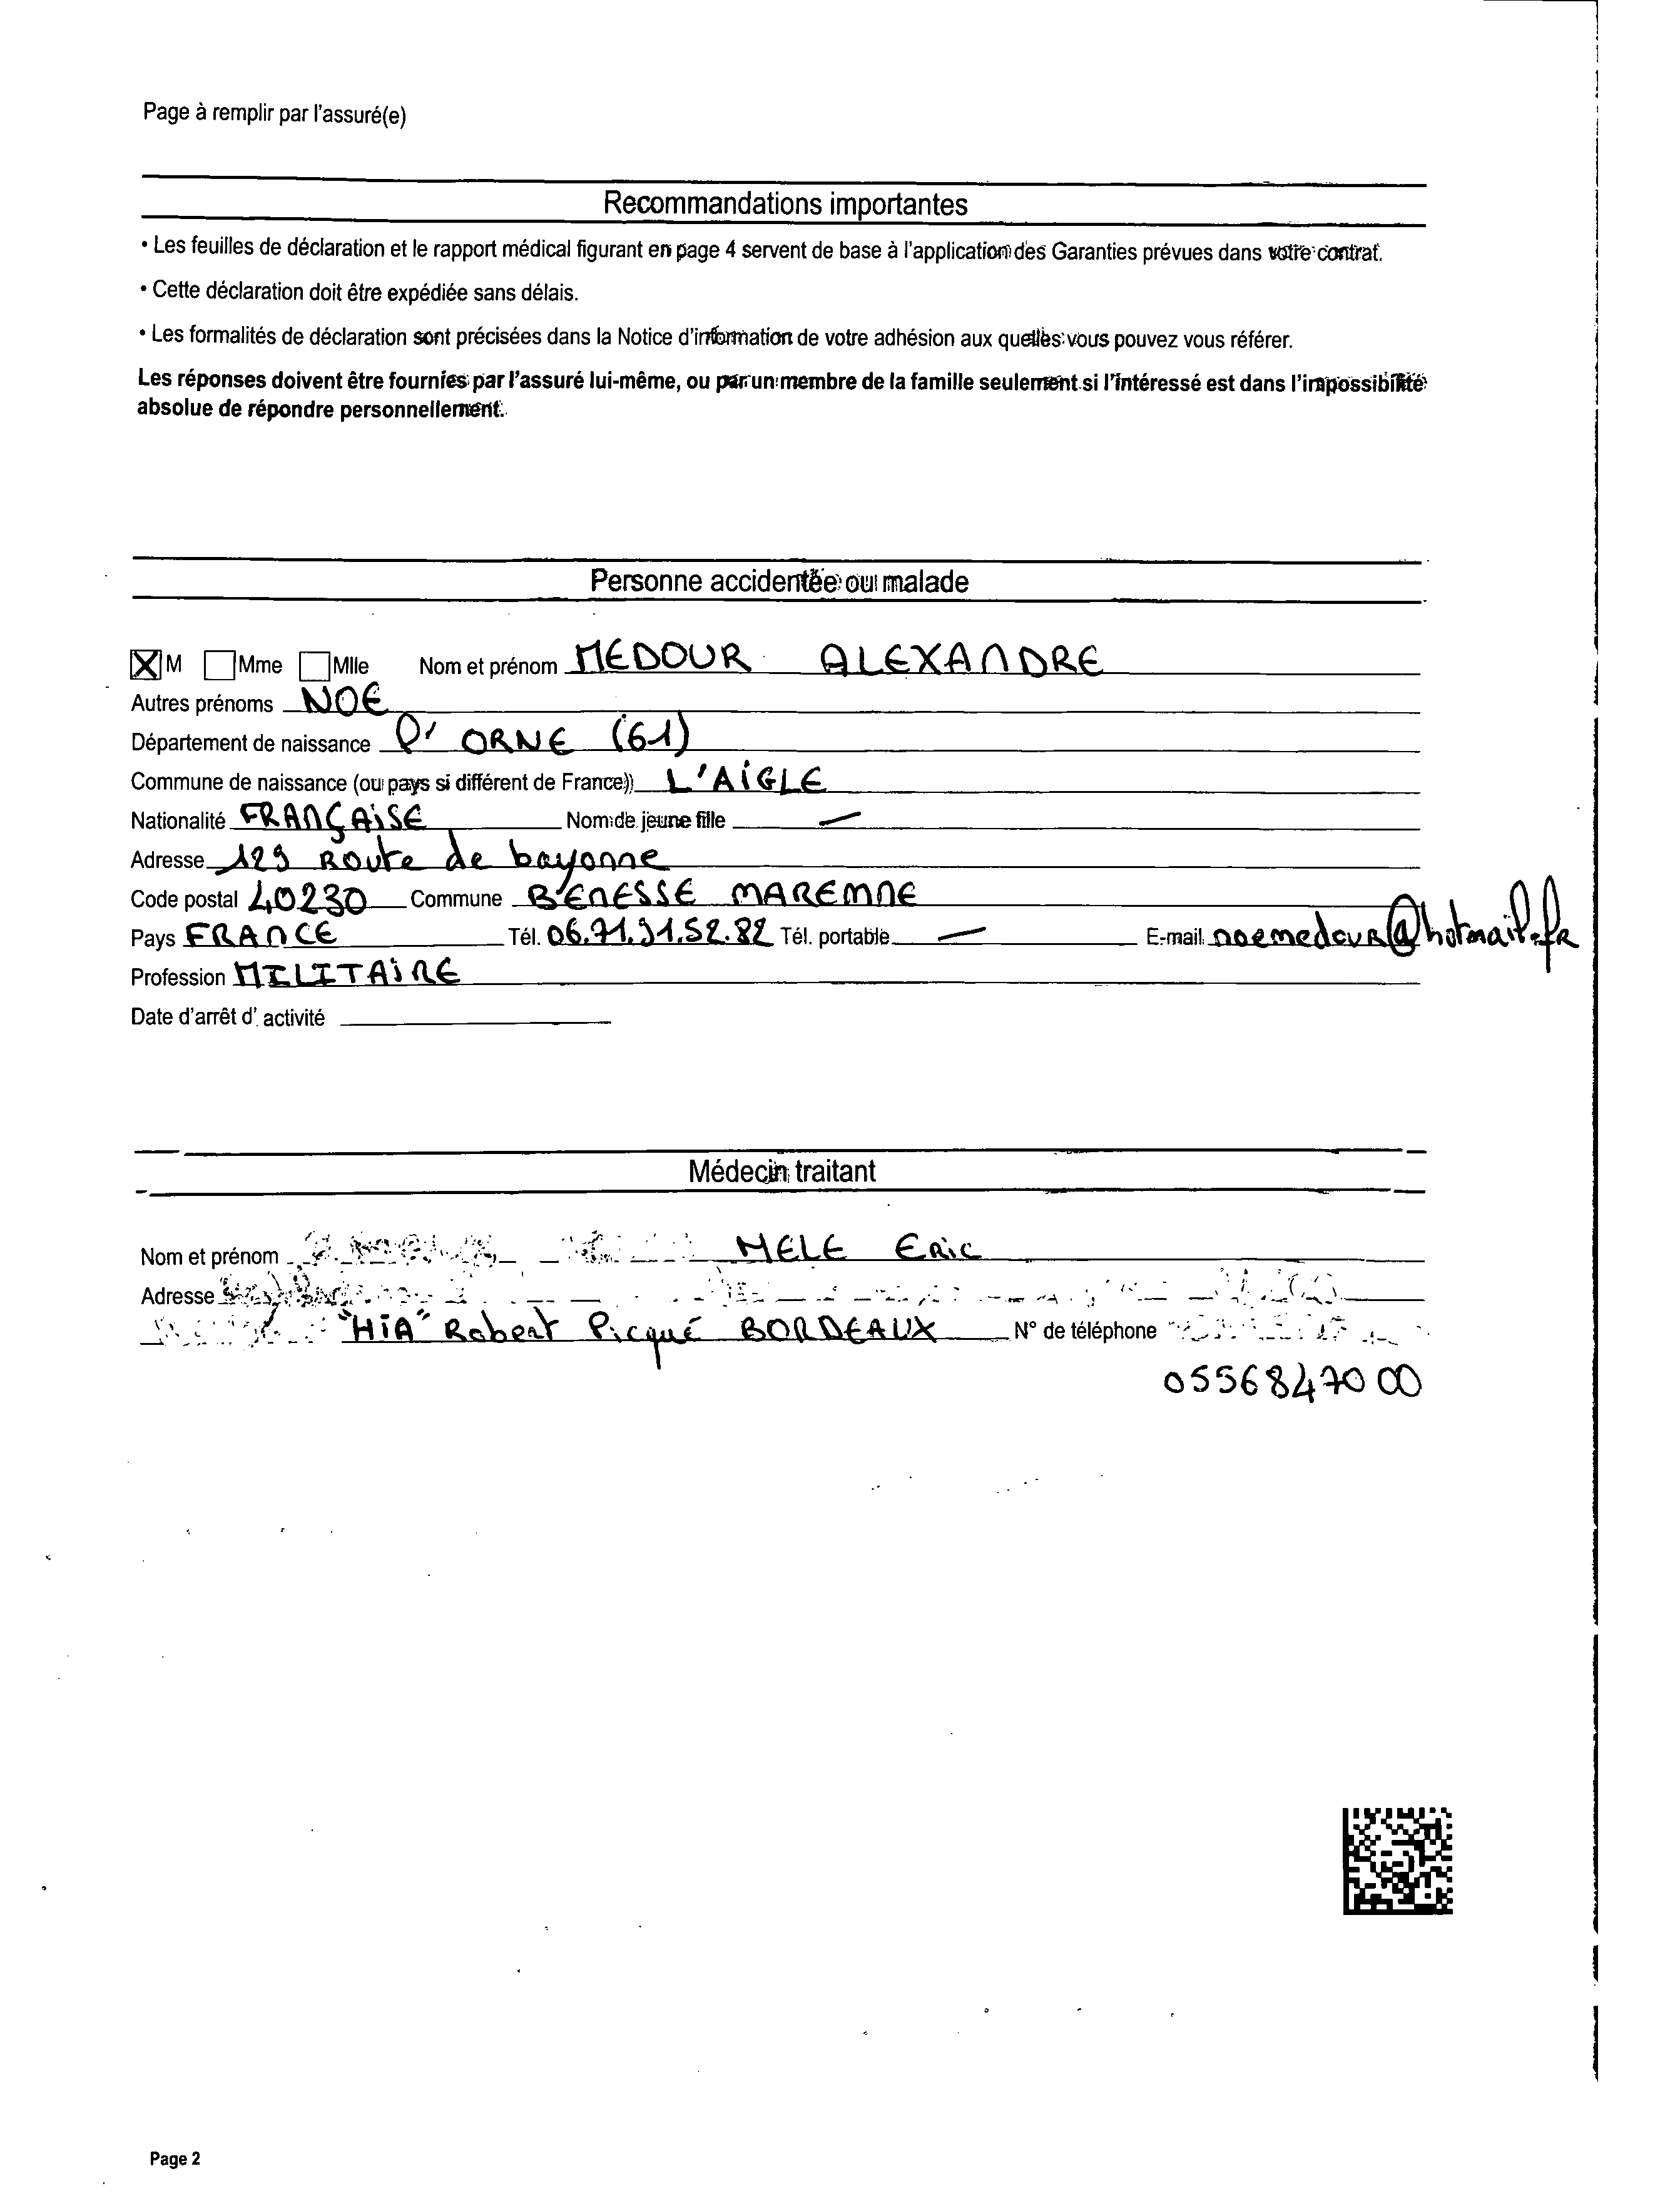 Page à remplir par l'assuré(e)
Recommandations importantes
• Les feuilles de déclaration et le rapport médical figurant en page 4 servent de base à l'application des Garanties prévues dans votre contrat.
• Cette déclaration doit être expédiée sans délais.
• Les formalités de déclaration sont précisées dans la Notice d'information de votre adhésion aux quelles vous pouvez vous référer.
Les réponses doivent être fournies par l'assuré lui-même, ou par un membre de la famille seulement si l'intéressé est dans l'impossibilité
absolue de répondre personnellement.
Personne accidentée ou malade
M Mme Mlle Nom et prénom MEDOUR ALEXANDRE
Autres prénoms NOE
Département de naissance l' ORNE (61)
Commune de naissance (ou pays si différent de France) L'AiGLE
Nationalité FRANÇAiSE Nom de jeune fille —
Adresse 129 Route de bayonne
Code postal 40230 Commune BÉNESSE MAREMNE
Pays FRANCE Tél. 06.71.91.52.82 Tél. portable — E-mail noemedour@hotmail.fr
Profession MILITAiRE
Date d'arrêt d' activité
Médecin traitant
Nom et prénom MELE Eric
Adresse
"HiA" Robert Picqué BORDEAUX N° de téléphone
0556847000
Page 2